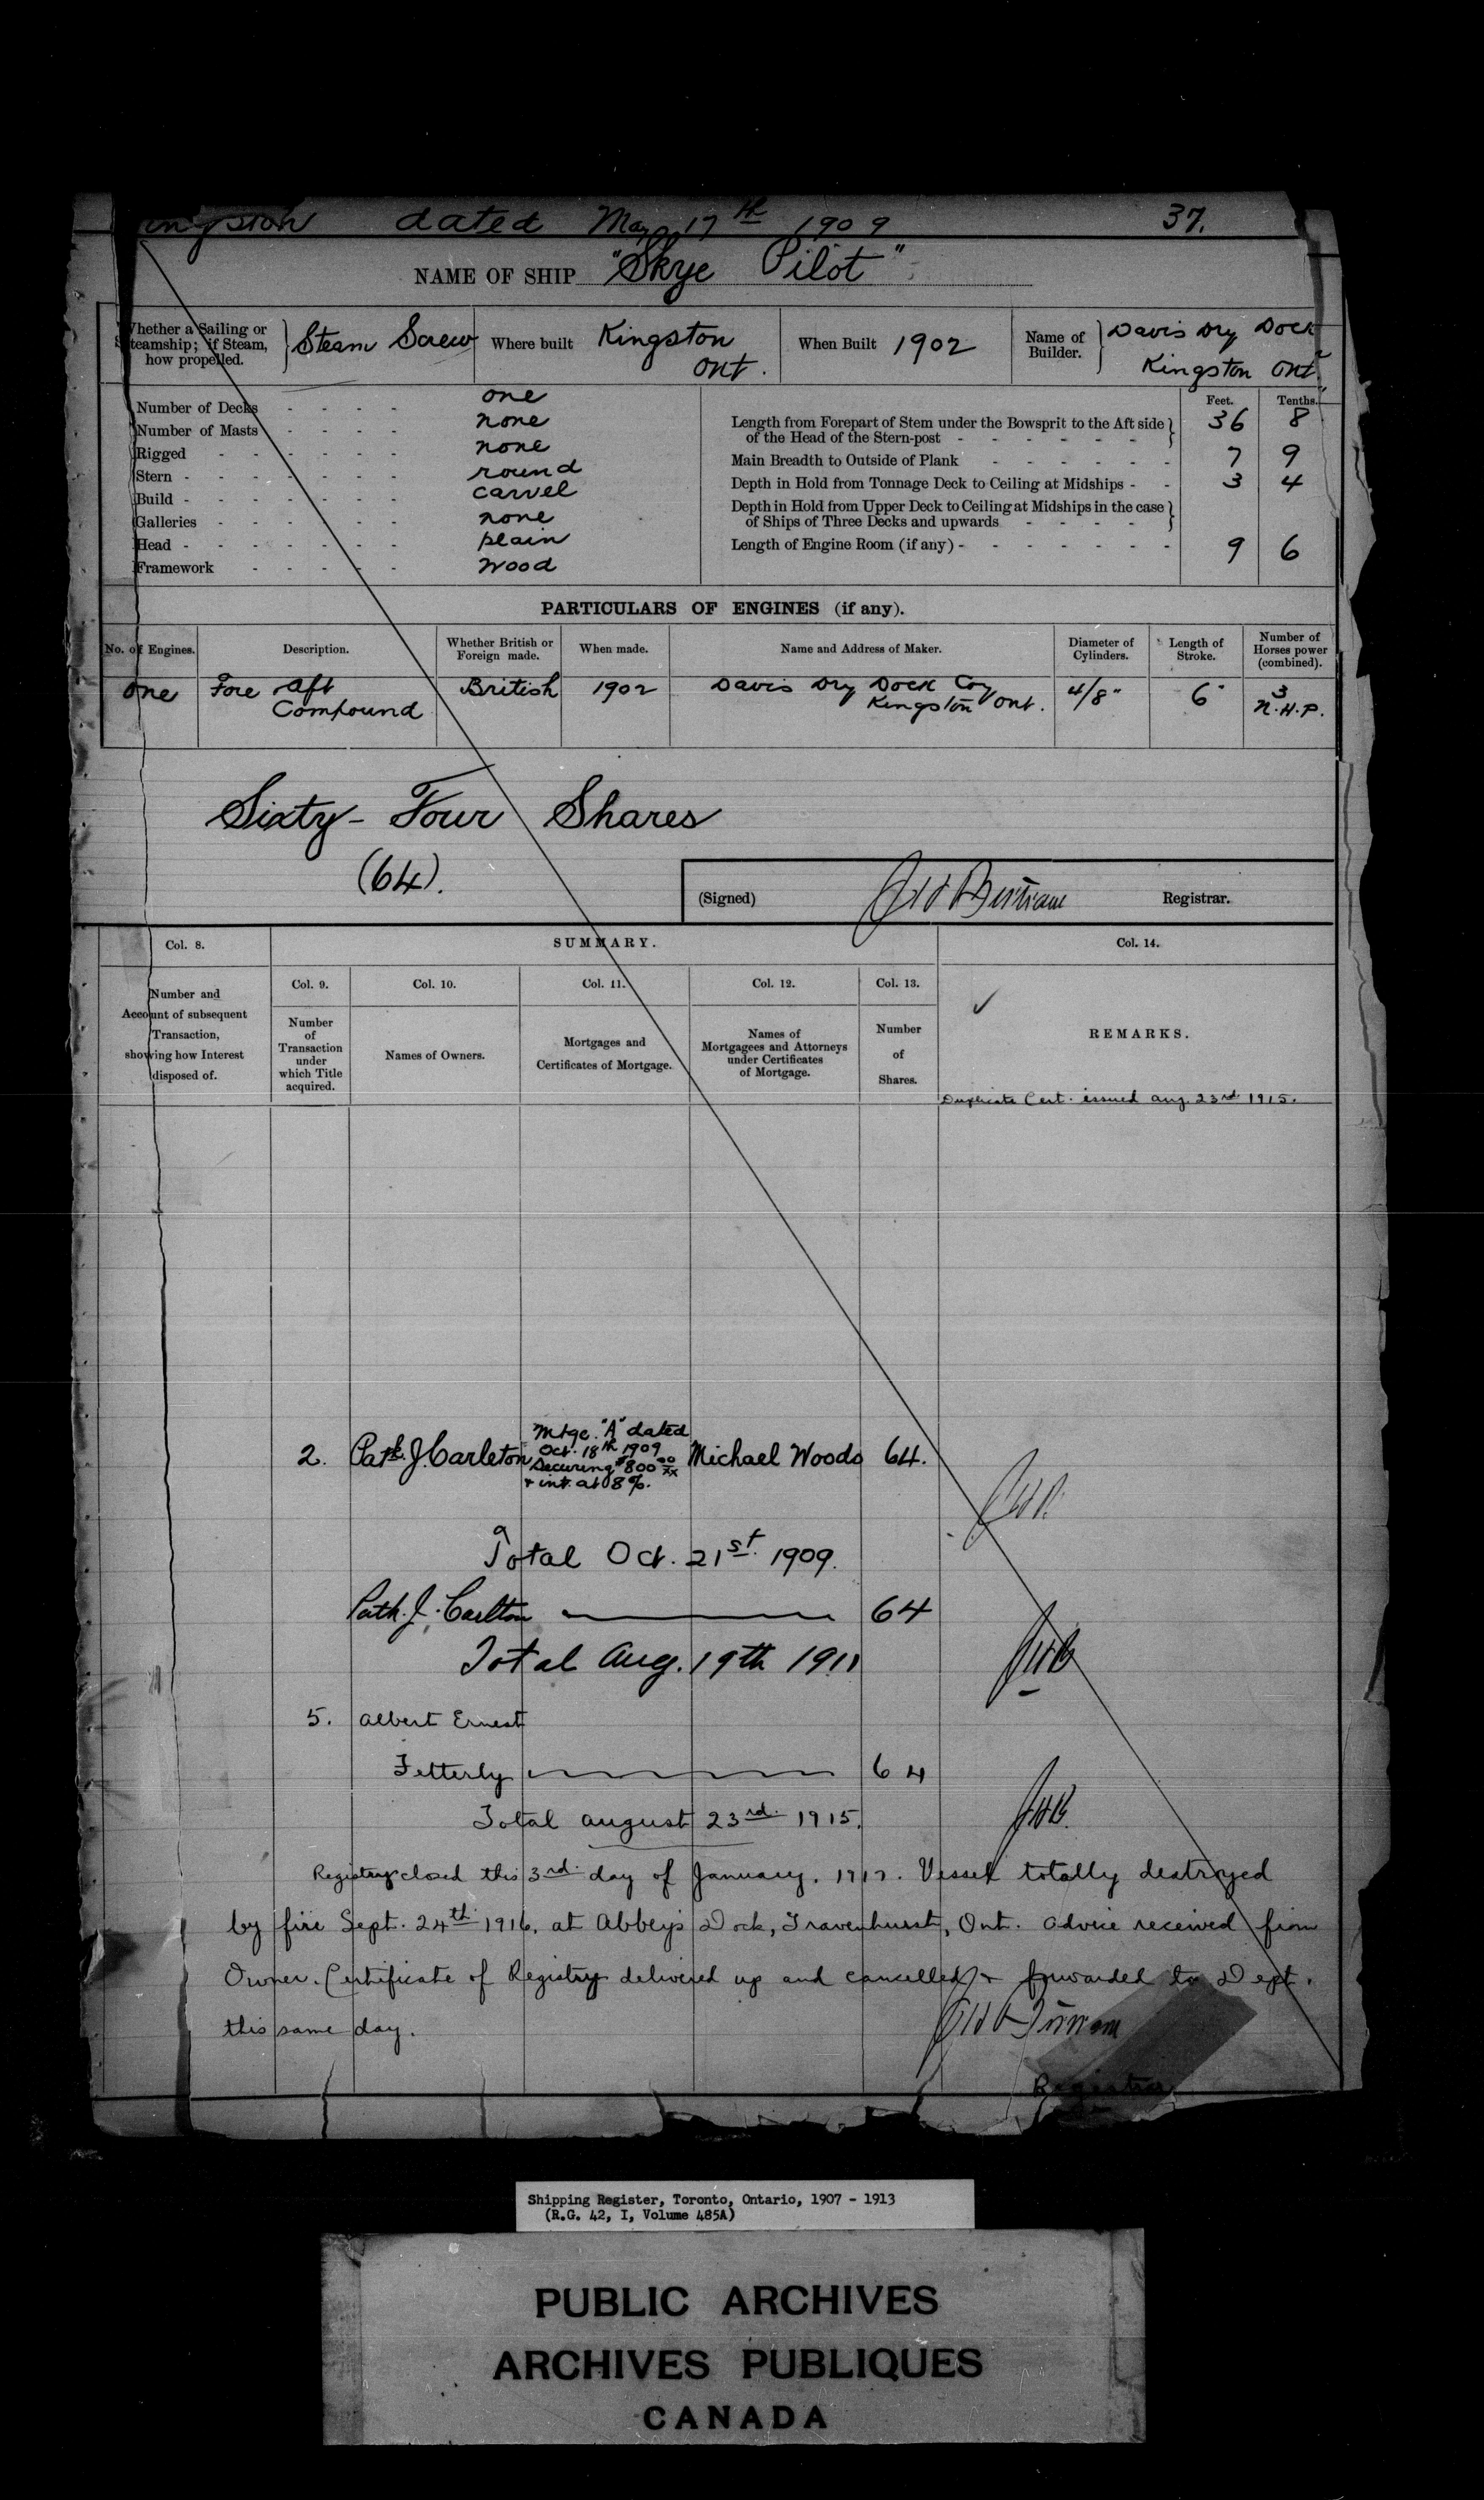 ingston dated May 17th 1909 37.
NAME OF SHIP "Skye Pilot"
Whether a Sailing or Steamship; if Steam, how propelled. Steam Screw Where built Kingston Ont. When Built 1902 Name of Builder. Davis Dry Dock Kingston Ont.
Number of Decks - - - - one
Number of Masts - - - - none
Rigged - - - - - - none
Stern - - - - - - - round
Build - - - - - - - carvel
Galleries - - - - - - none
Head - - - - - - - plain
Framework - - - - - wood
Feet. Tenths.
Length from Forepart of Stem under the Bowsprit to the Aft side
of the Head of the Stern-post - - - - - - 36 8
Main Breadth to Outside of Plank - - - - - - 7 9
Depth in Hold from Tonnage Deck to Ceiling at Midships - - 3 4
Depth in Hold from Upper Deck to Ceiling at Midships in the case
of Ships of Three Decks and upwards - - - -
Length of Engine Room (if any) - - - - - - - 9 6
PARTICULARS OF ENGINES (if any).
No. of Engines. Description. Whether British or Foreign made. When made. Name and Address of Maker. Diameter of Cylinders. Length of Stroke. Number of Horses power (combined).
One Fore & Aft Compound British 1902 Davis Dry Dock Coy Kingston Ont. 4/8" 6" 3 N.H.P.
Sixty-Four Shares
(64).
(Signed) Registrar.
Col. 8. SUMMARY. Col. 14.
Col. 9. Col. 10. Col. 11. Col. 12. Col. 13.
Number and Account of subsequent Transaction, showing how Interest disposed of.
Number of Transaction under which Title acquired.
Names of Owners.
Mortgages and Certificates of Mortgage.
Names of Mortgagees and Attorneys under Certificates of Mortgage.
Number of Shares.
REMARKS.
Duplicate Cert. issued Aug. 23rd 1915.
2. Patk. J. Carleton Mtge. "A" dated Oct. 18th 1909 Securing $800 00/xx & int. at 8%. Michael Woods 64.
Total Oct. 21st 1909.
Path. J. Carlton 64
Total Aug. 19th 1911
5. Albert Ernest
Fetterly 64
Total August 23rd 1915.
Registry closed this 3rd day of January, 1917. Vessel totally destroyed
by fire Sept. 24th 1916, at Abbey's Dock, Gravenhurst, Ont. Advice received from
Owner. Certificate of Registry delivered up and cancelled & forwarded to Dept.
this same day.
Registrar
Shipping Register, Toronto, Ontario, 1907 - 1913
(R.G. 42, I, Volume 485A)
PUBLIC ARCHIVES
ARCHIVES PUBLIQUES
CANADA